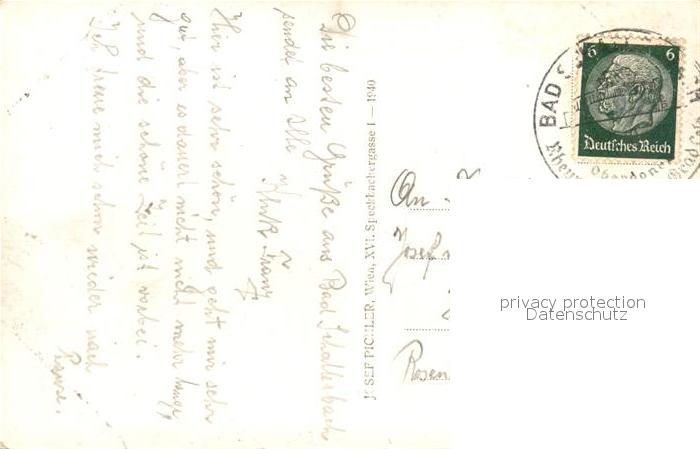 Die besten Grüße aus Bad Schallerbach
sendet an Alle
Hier ist sehr schön, und geht mir sehr
gut, aber es dauert nicht mehr lange
und die schöne Zeit ist vorbei.
Ich freue mich schon wieder nach
Hause.
JOSEF PICHLER, Wien, XVI. Speckbachergasse 1 — 1940
6 6
Deutsches Reich
BAD
An
Josef
Rosen
privacy protection
Datenschutz